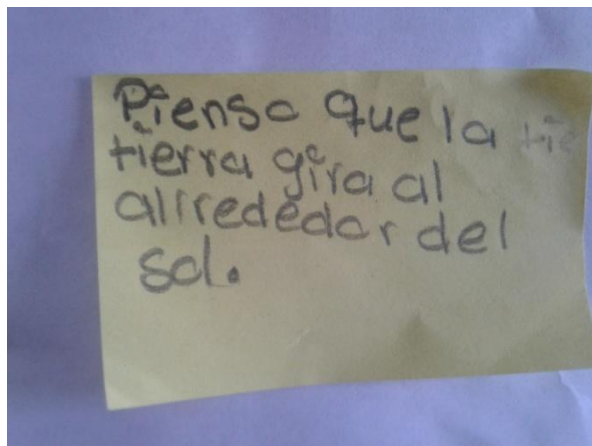 Pienso que la tie
tierra gira al
alrrededor del
sol.